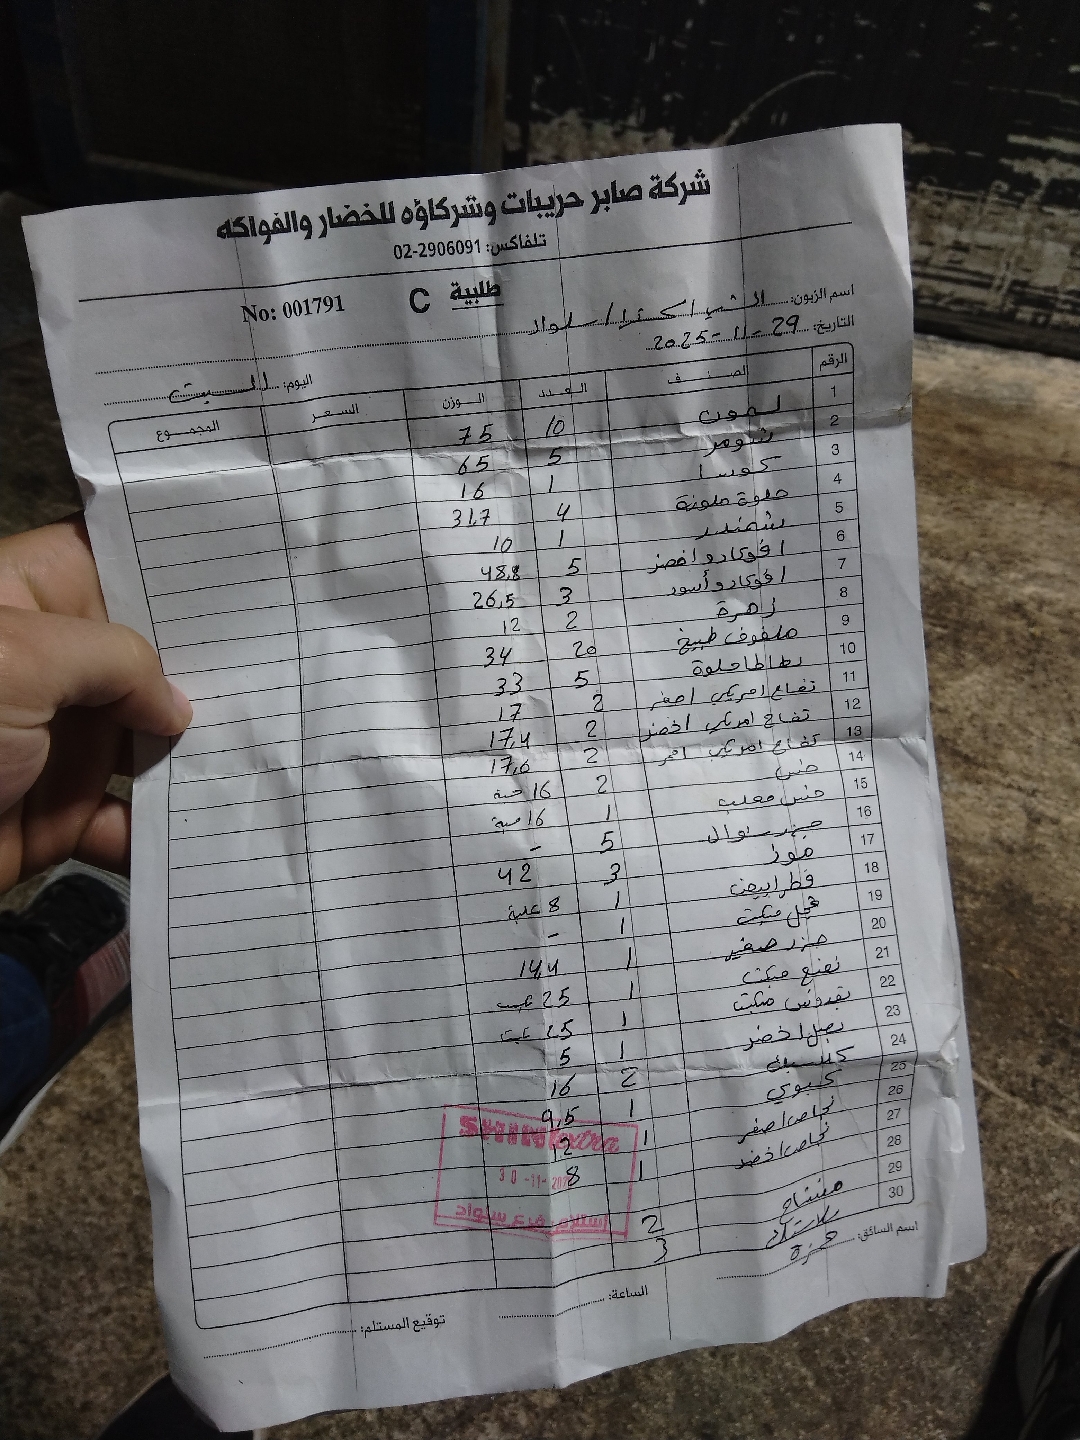 شركة صابر حريبات وشركاؤه للخضار والفواكه
تلفاكس: 02-2906091
طلبية C No: 001791
اسم الزبون: الشني اكسترا / سلواد
التاريخ: 29-11-2025
اليوم: السبت
الرقم الصنف العدد الوزن السعر المجموع
1 ليمون 10 75
2 شومر 5 65
3 كوسا 1 16
4 حلوة ملونة 4 31.7
5 شمندر 1 10
6 افوكادو اخضر 5 48,8
7 افوكادو أسود 3 26,5
8 زهرة 2 12
9 ملفوف طبيخ 20 34
10 بطاطا حلوة 5 33
11 تفاح امريكي اصفر 2 17
12 تفاح امريكي اخضر 2 17,4
13 تفاح امريكي احمر 2 17,6
14 خس 2 16 حبة
15 خس معلب 1 16 حبة
16 5 -
17 موز 3 42
18 فطر ابيض 1 8 علبة
19 فجل مكيت 1 -
20 جزر صغير 1 14,4
21 نعنع مكيت 1 25
22 بقدونس مكيت 1 25
23 بصل اخضر 1 5
24 2 16
25 كيوي 1 9,5
26 نجاص اصفر 1 2
27 نجاص اخضر 1 8
28
29 مشتاح 2
30 3
اسم السائق: حمزة
الساعة:
توقيع المستلم:
30-11-202
استلام فرع سلواد